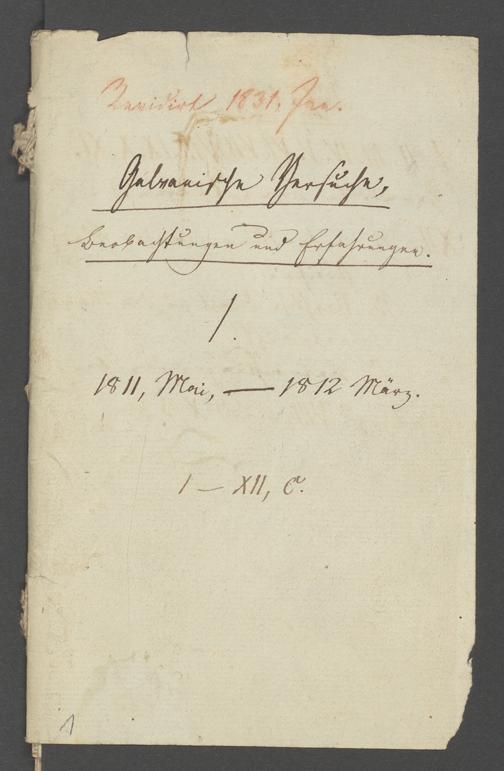 Revidirt 1831, Jan.
Galvanische Versuche,
Beobachtungen und Erfahrungen.
1.
1811, Mai, — 1812 März.
I — XII, C.
1